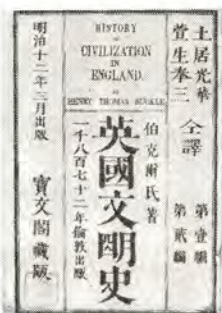 土居光華
萱生奉三
仝譯
第壹册
第貳編
HISTORY
OF
CIVILIZATION
IN
ENGLAND.
BY
HENRY THOMAS BUCKLE
伯克爾氏著
英國文明史
一千八百七十二年倫敦出版
明治十二年三月出版
寶文閣藏版